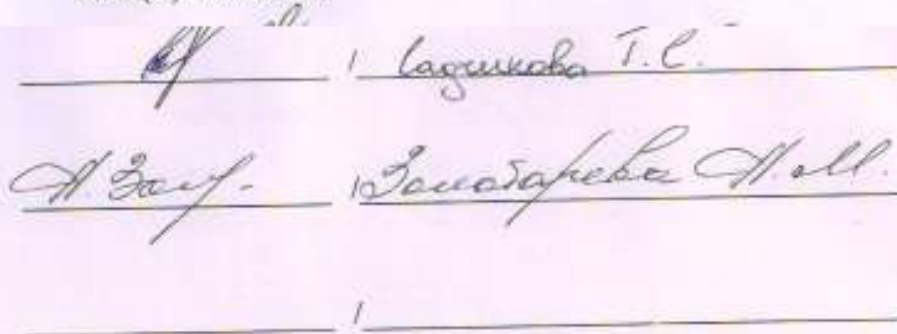 / Садикова Т.С.
Н. Зол. / Золотарева Н.М.
/